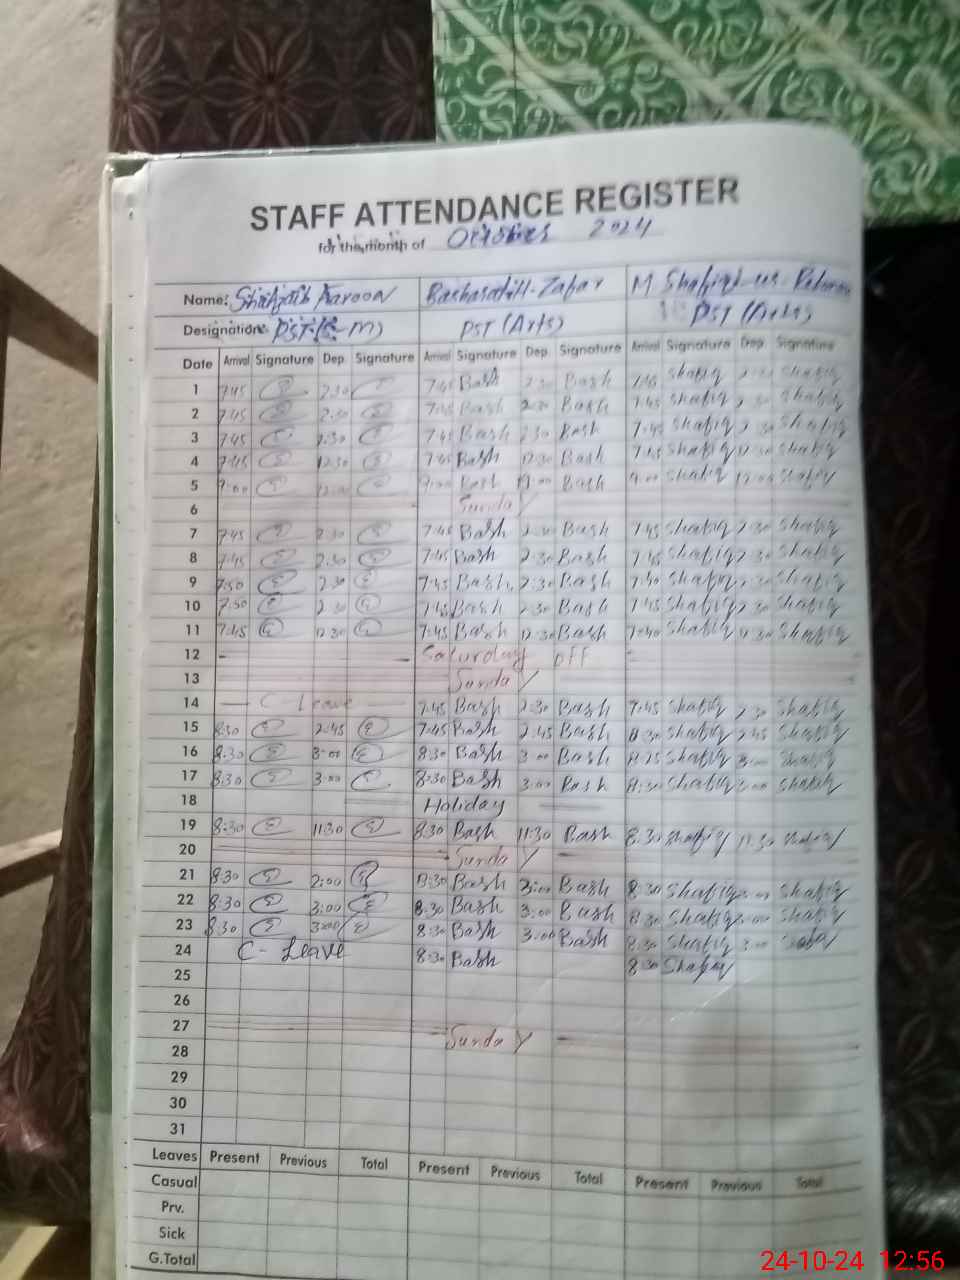 STAFF ATTENDANCE REGISTER
for the month of October 2024
Name: Shahzaib Haroon Basharat-Ill-Zafar M Shafiq-us-Rehman
Designation: PST (S-M) PST (Arts) PST (Arts)
Date Arrival Signature Dep. Signature Arrival Signature Dep. Signature Arrival Signature Dep. Signature
1 7:45 2:30 7:45 Bash 2:30 Bash 7:45 Shafiq 2:30 Shafiq
2 7:45 2:30 7:45 Bash 2:30 Bash 7:45 Shafiq 2:30 Shafiq
3 7:45 2:30 7:45 Bash 2:30 Bash 7:45 Shafiq 2:30 Shafiq
4 7:45 12:30 7:45 Bash 12:30 Bash 7:45 Shafiq 12:30 Shafiq
5 9:00 12:00 9:00 Bash 12:00 Bash 9:00 Shafiq 12:00 Shafiq
6 Sunday
7 7:45 2:30 7:45 Bash 2:30 Bash 7:45 Shafiq 2:30 Shafiq
8 7:45 2:30 7:45 Bash 2:30 Bash 7:45 Shafiq 2:30 Shafiq
9 7:50 2:30 7:45 Bash 2:30 Bash 7:40 Shafiq 2:30 Shafiq
10 7:50 2:30 7:45 Bash 2:30 Bash 7:45 Shafiq 2:30 Shafiq
11 7:45 12:30 7:45 Bash 12:30 Bash 7:40 Shafiq 12:30 Shafiq
12 Saturday off
13 Sunday
14 C-Leave 7:45 Bash 2:30 Bash 7:45 Shafiq 2:30 Shafiq
15 8:30 2:45 7:45 Bash 2:45 Bash 8:30 Shafiq 2:45 Shafiq
16 8:30 3:00 8:30 Bash 3:00 Bash 8:25 Shafiq 3:00 Shafiq
17 8:30 3:00 8:30 Bash 3:00 Bash 8:30 Shafiq 3:00 Shafiq
18 Holiday
19 8:30 11:30 8:30 Bash 11:30 Bash 8:30 Shafiq 11:30 Shafiq
20 Sunday
21 8:30 2:00 8:30 Bash 3:00 Bash 8:30 Shafiq 3:00 Shafiq
22 8:30 3:00 8:30 Bash 3:00 Bash 8:30 Shafiq 3:00 Shafiq
23 8:30 3:00 8:30 Bash 3:00 Bash 8:30 Shafiq 3:00
24 C-Leave 8:30 Bash 8:30 Shafiq
25
26
27 Sunday
28
29
30
31
Leaves Present Previous Total Present Previous Total Present Previous Total
Casual
Prv.
Sick
G.Total
24-10-24 12:56